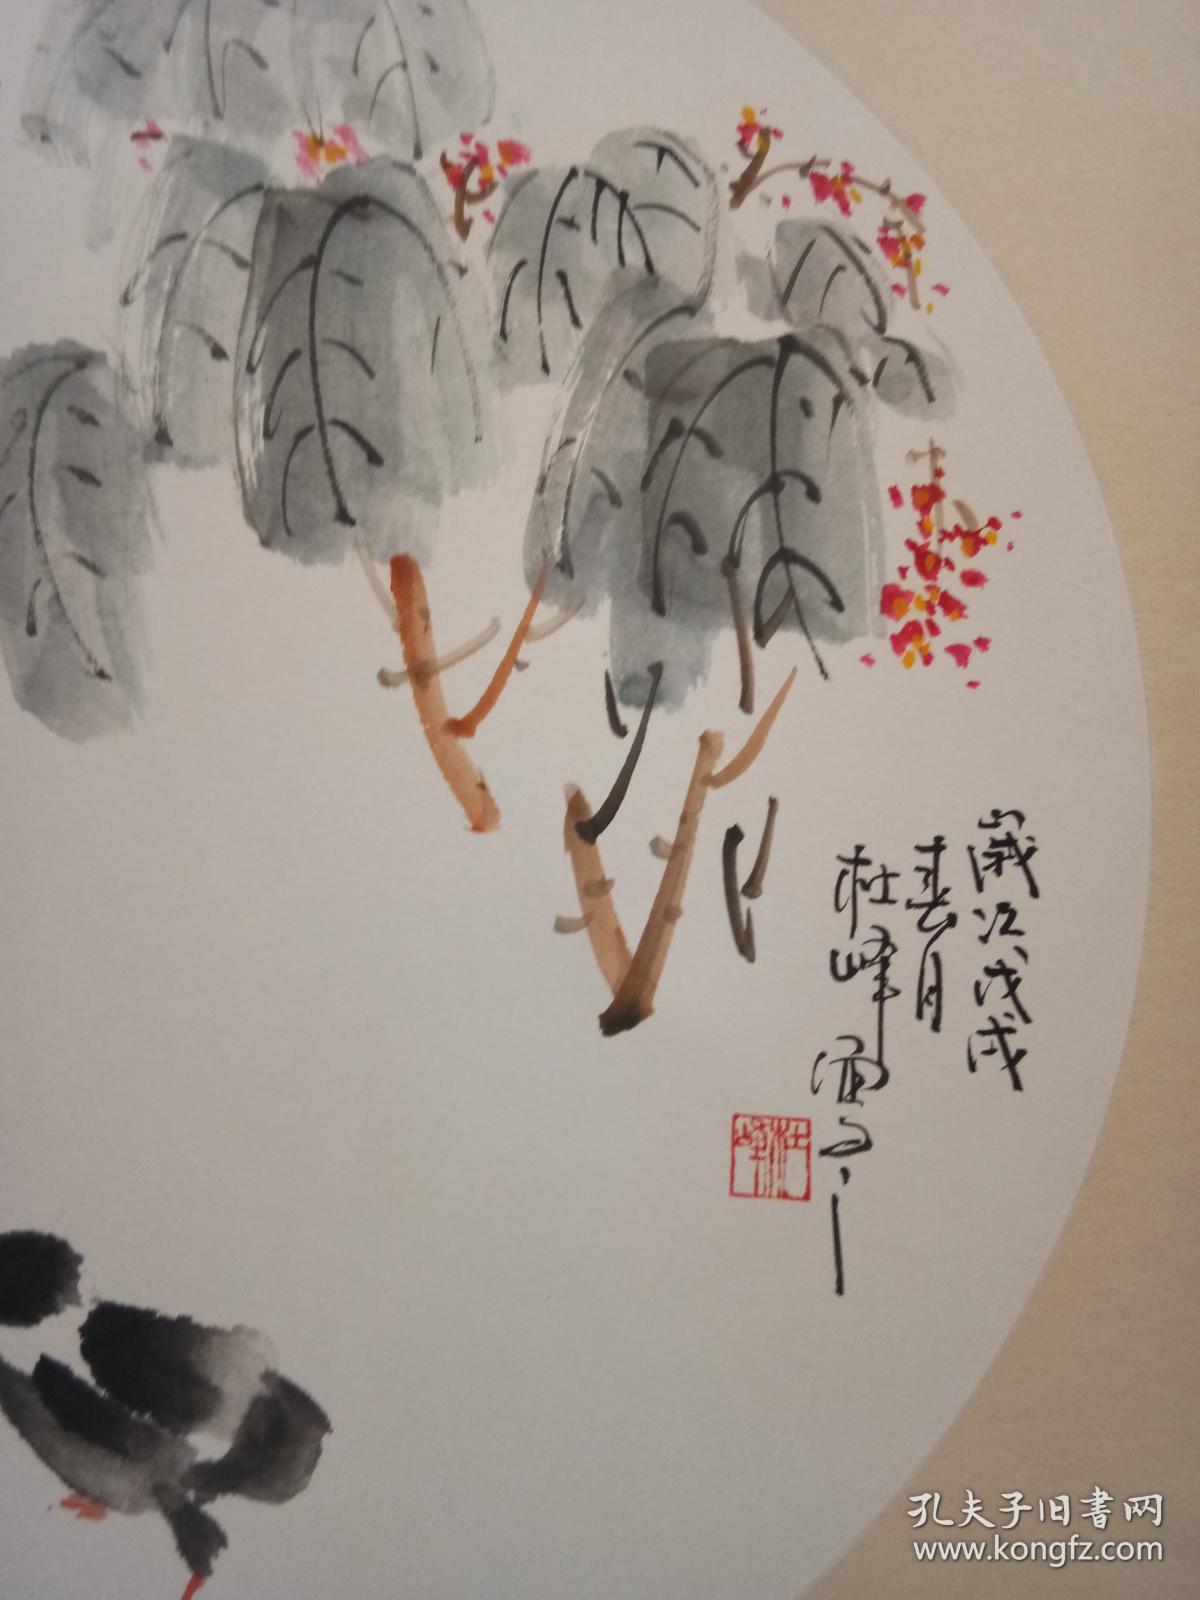 岁次戊戌
春月
杜峰画了一
杜峰
孔夫子旧书网
www.kongfz.com